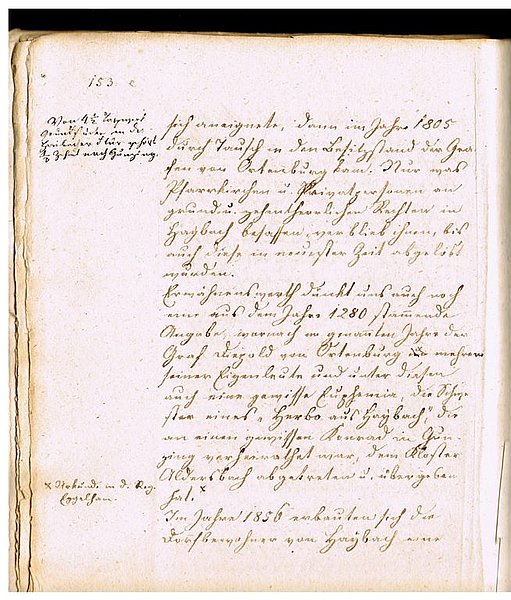 153 e
Von 4 1/2 Tagwerk
Grundstücken in der
Flur gehört
Zehnt nach Gunzing.
sich aneignete, dann im Jahre 1805
durch Tausch in den Besitzstand der Gra-
fen von Ortenburg kam. Nur was
Pfarrkirchen u. Privatpersonen an
grund u. zehentherrlichen Rechten in
Haybach besassen, verblieb ihnen, bis
auch diese in neuester Zeit abgelöst
wurden.
Erwähnenswerth dünkt uns auch noch
eine aus dem Jahre 1280 stammende
Angabe, wornach im genannten Jahre der
Graf Diepold von Ortenburg mehrere
seiner Eigenleute und unter diesen
auch eine gewisse Euphemia, die Schwe-
ster eines "Herbo aus Haybach" die
an einen gewissen Konrad in Gun-
zing verheirathet war, dem Kloster
Aldersbach abgetreten u. übergeben
hat. x
x Urkunde in d. Reg.
Egglham.
Im Jahre 1856 erbauten sich die
Dorfbewohner von Haybach eine